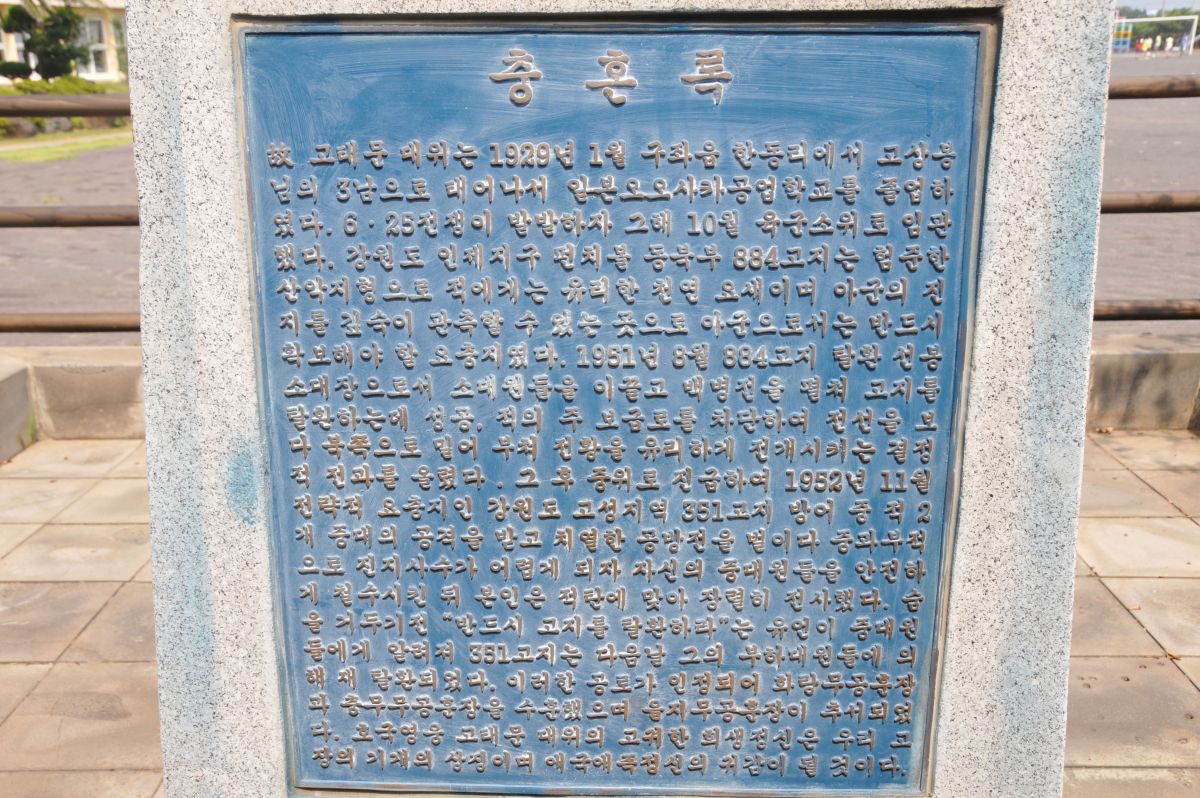 충혼록
故 고태문 대위는 1929년 1월 구좌읍 한동리에서 고상봉
님의 3남으로 태어나서 일본오오사카공업학교를 졸업하
였다. 6·25전쟁이 발발하자 그해 10월 육군소위로 임관
했다. 강원도 인제지구 펀치볼 동북부 884고지는 험준한
산악지형으로 적에게는 유리한 천연 요새이며 아군의 진
지를 깊숙이 관측할 수 있는 곳으로 아군으로서는 반드시
확보해야 할 요충지였다. 1951년 8월 884고지 탈환 선봉
소대장으로서 소대원들을 이끌고 백병전을 펼쳐 고지를
탈환하는데 성공, 적의 주 보급로를 차단하여 전선을 보
다 북쪽으로 밀어 부쳐 전황을 유리하게 전개시키는 결정
적 전과를 올렸다. 그 후 중위로 진급하여 1952년 11월
전략적 요충지인 강원도 고성지역 351고지 방어 중 적 2
개 중대의 공격을 받고 치열한 공방전을 벌이다 중과부적
으로 진지사수가 어렵게 되자 자신의 중대원들을 안전하
게 철수시킨 뒤 본인은 적탄에 맞아 장렬히 전사했다. 숨
을 거두기전 "반드시 고지를 탈환하라"는 유언이 중대원
들에게 알려져 351고지는 다음날 그의 부하대원들에 의
해 재 탈환되었다. 이러한 공로가 인정되어 화랑무공훈장
과 충무무공훈장을 수훈했으며 을지무공훈장이 추서되었
다. 호국영웅 고태문 대위의 고귀한 희생정신은 우리 고
장의 기개의 상징이며 애국애족정신의 귀감이 될 것이다.